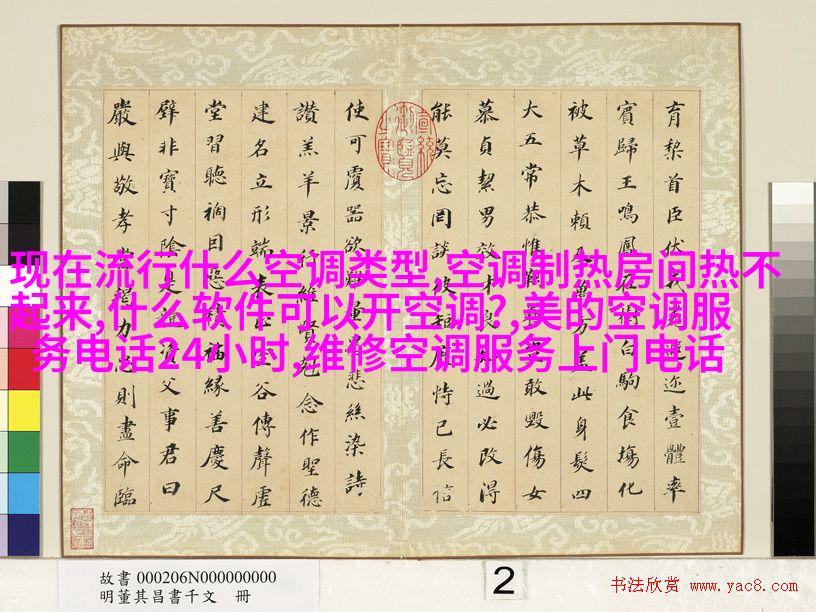 育黎首臣伏戎羌遐迩壹體率
賓歸王鳴鳳在樹白駒食場化
被草木賴及萬方盖此身髮四
大五常恭惟鞠養豈敢毀傷女
慕貞絜男效才良知過必改得
能莫忘罔談彼短靡恃己長信
使可覆器欲難量墨悲絲染詩
讚羔羊景行維賢剋念作聖德
建名立形端表正空谷傳聲虛
堂習聽禍因惡積福緣善慶尺
璧非寶寸陰是競資父事君曰
嚴與敬孝當竭力忠則盡命臨
现在流行什么空调类型,空调制热房间热不
起来,什么软件可以开空调?,美的空调服
务电话24小时,维修空调服务上门电话
故書 000206N000000000
明董其昌書千文 冊
2
书法欣赏 www.yac8.com